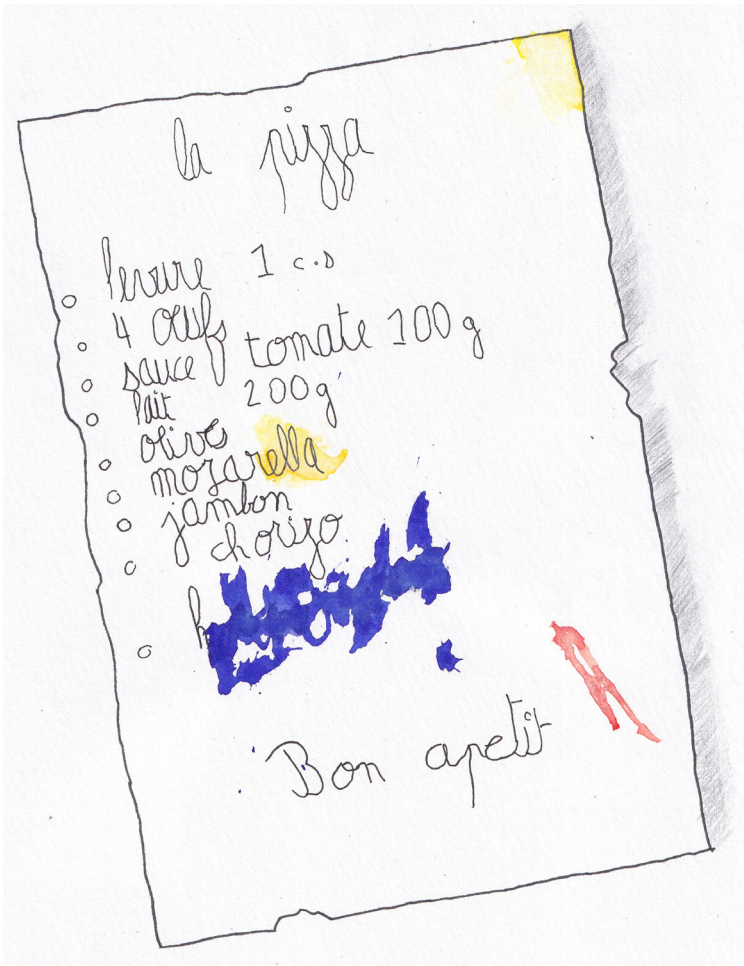 la pizza
levure 1 c.s
4 œufs
sauce tomate 100 g
lait 200 g
olives
mozarella
jambon
chorizo
Bon apetit